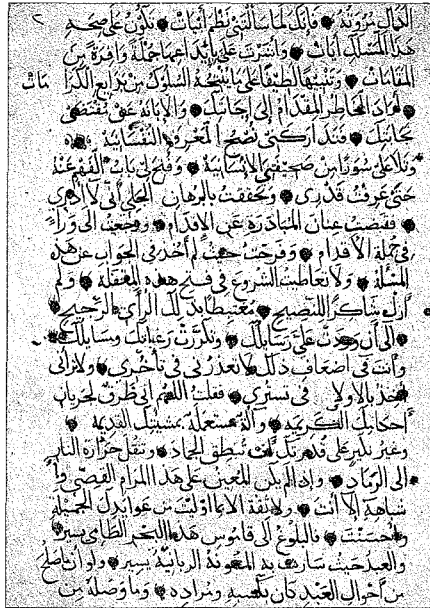 الحال بيروته فانك لما سالتني نظم ابيات تكون على صحة
هذا المسلك آيات وانثرت على اثر اتمامها جملة وافرة من
المقامات وتنبيها لطيفا على ما نتيجة السلوك من بدايع الكرامات
فاراد الخاطر المقدام الى اجابتك والابانة عن مقتضى
حاجتك فتداركني نصح المعرفة النفسانية
وتلا على سورا من صحيفتي الانسانية وفتح لي باب الفهم عنه
حتى عرفت قدري وتحققت بالبرهان الجلي انى لا ادرى
فقبضت عنان المبادرة عن الاقدام ورجعت الى وراء
في جملة الاقدام وفرحت حيث لم آخذ في الجواب عن هذه
المسئلة ولا تعاطيت الشروع في فتح هذه المقفلة ولم
ازل شاكرا للنصيح مغتبطا بذلك الراى الرجيح
الى ان وردت على رسايلك وتكررت رغباتك ومسايلك
وانت في اضعاف ذلك لا تعذرني في تأخري ولا ترانى
بالاولا في تستري فقلت اللهم انى طرق لجريان
احكامك الكريمة وآلة مستعملة بمشيتك القديمة
وغير نكير على قدرتك ان تنطق الجماد وتنقل حرارة النار
الى الرماد واذا لم يكن المعين على هذا المرام القصي وا
شاهه الا انت ولا ثقة الا بما اوليت من عوايدك الجميلة
واحسنت فالبلوغ الى قاموس هذا البحر الطامى يسير
والعبد حيث سارت به المعونة الربانية يسير ولو ان ما صلح
من احوال العبد كان بكسبه ومراده وما وصله من